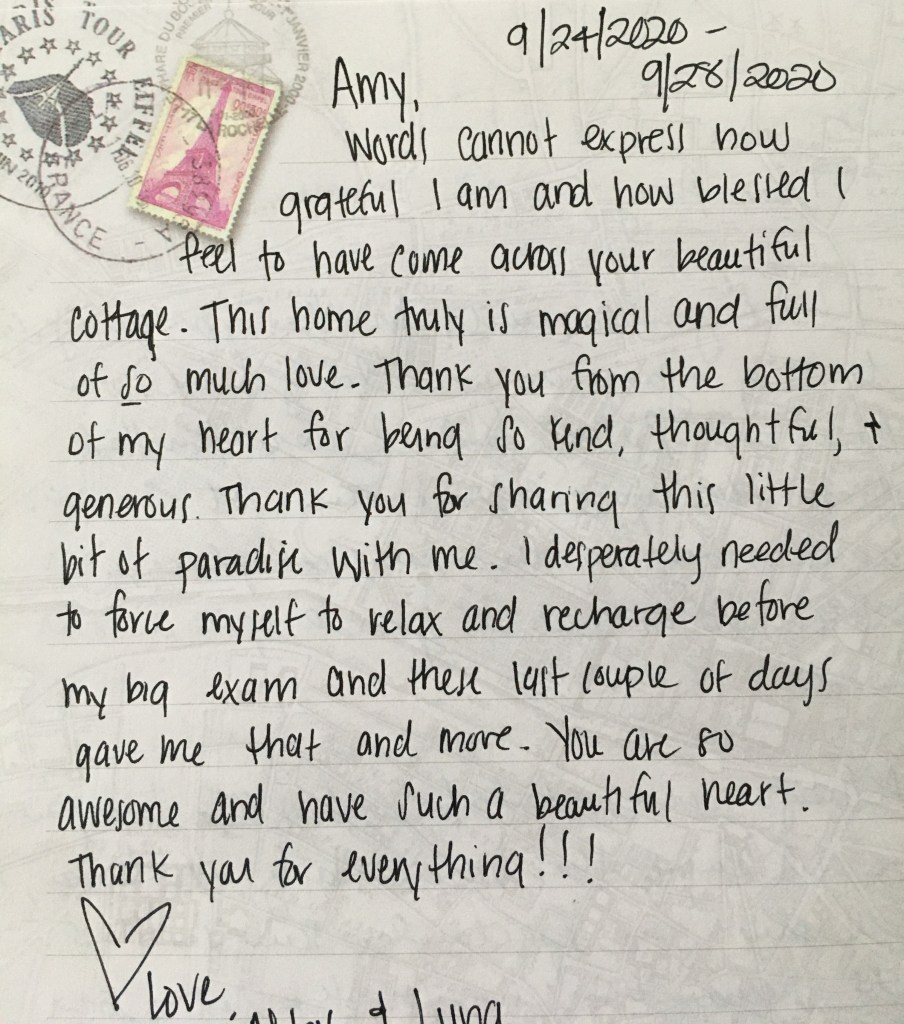 PARIS TOUR EIFFEL
FRANCE
9/24/2020 -
9/28/2020
Amy,
Words cannot express how
grateful I am and how blessed I
feel to have come across your beautiful
cottage. This home truly is magical and full
of so much love. Thank you from the bottom
of my heart for being so kind, thoughtful, +
generous. Thank you for sharing this little
bit of paradise with me. I desperately needed
to force myself to relax and recharge before
my big exam and these last couple of days
gave me that and more. You are so
awesome and have such a beautiful heart.
Thank you for everything!!!
Love,
& Luna